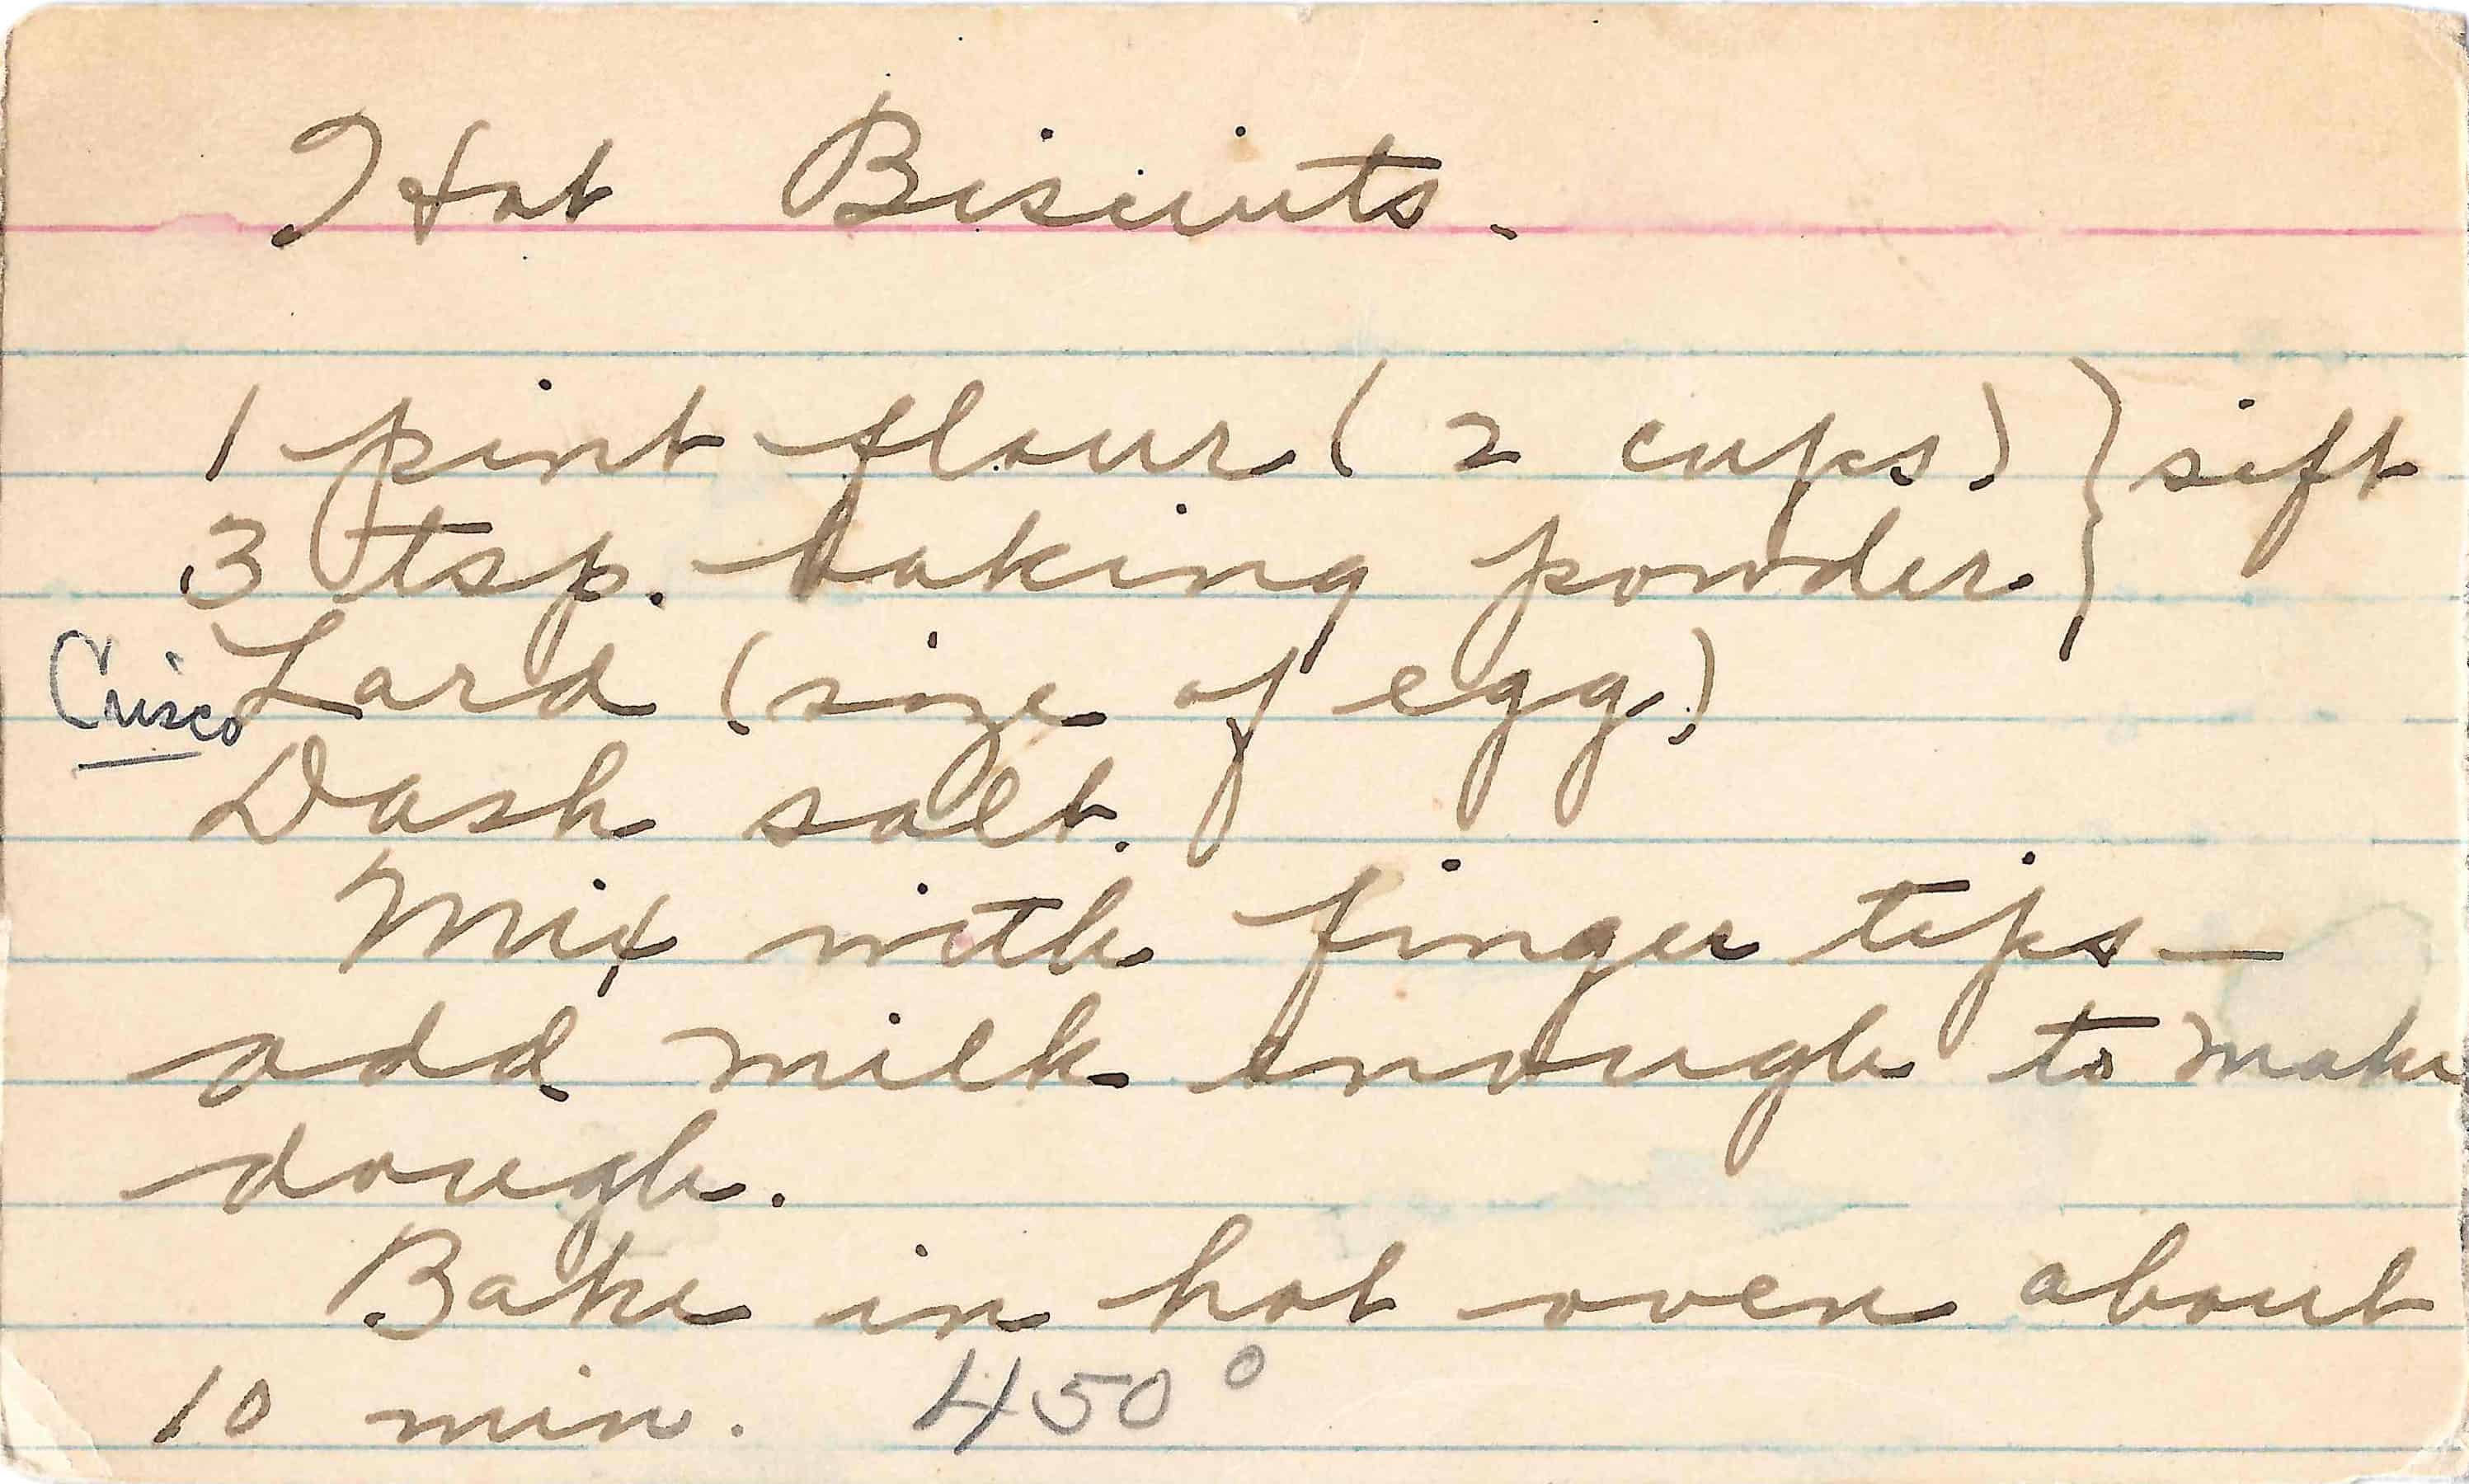 Hot Biscuits.
1 pint flour (2 cups) } sift
3 tsp. baking powder.
Crisco Lard (size of egg)
Dash salt.
Mix with finger tips —
add milk enough to make
dough.
Bake in hot oven about
10 min. 450°